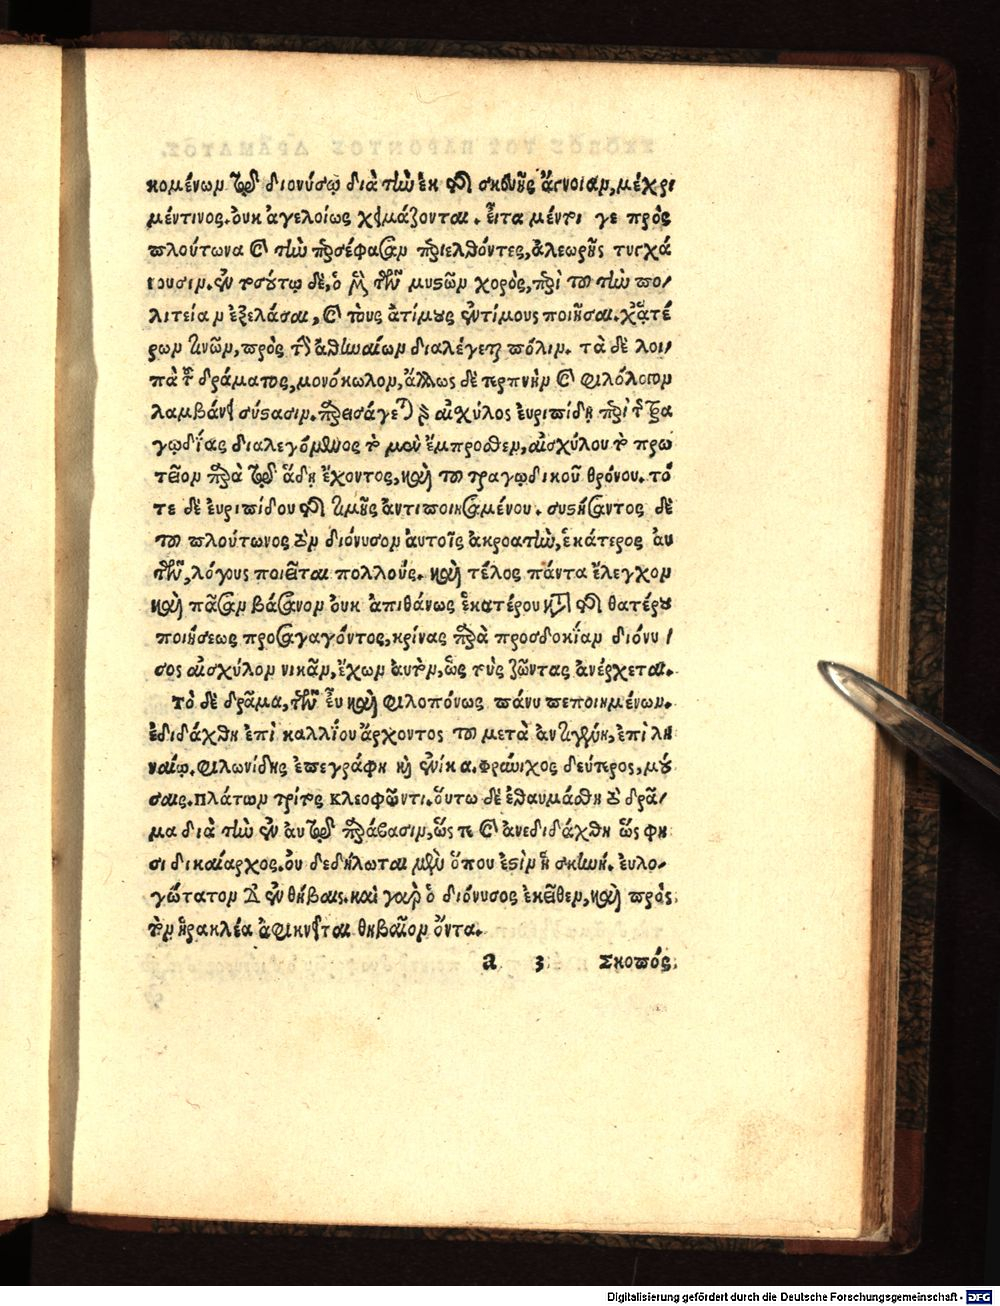 κομένων τῷ διονύσῳ διὰ τὴν ἐκ τῆς σκευῆς ἄγνοιαν, μέχρι
μέντινος. ὀυκ ἀγελοίως χειμάζονται. εἶτα μέντοι γε πρὸς
πλούτωνα καὶ τὴν περσέφασαν παριελθόντες, ἀλεωρῆς τυγχά
νουσιν. ἐν τούτῳ δὲ, ὁ μὲν τῶν μυστῶν χορὸς, περὶ τοῦ τὴν πο/
λιτείαν ἐξελάσαι, καὶ τοὺς ἀτίμους ἐντίμους ποιῆσαι. χἀτέ
ρων τινῶν, πρὸς τὴν ἀθηναίων διαλέγεται πόλιν. τὰ δὲ λοι/
πὰ τοῦ δράματος, μονόκωλον, ἄλλως δὲ τερπνὴν καὶ φιλόλογον
λαμβάνει σύστασιν. παρεισάγεται γὰρ αἰσχύλος ἐυριπίδῃ περὶ τῆς τρα
γῳδίας διαλεγόμενος τὸ μὲν ἔμπροσθεν, αἰσχύλου τὸ πρω
τεῖον παρὰ τῷ ἅδῃ ἔχοντος, καὶ τοῦ τραγῳδικοῦ θρόνου. τό
τε δὲ ἐυριπίδου τῆς τιμῆς ἀντιποιησαμένου. συστήσαντος δὲ
τοῦ πλούτωνος τὸν διόνυσον ἀυτοῖς ἀκροατὴν, ἑκάτερος ἀυ
τῶν, λόγους ποιεῖται πολλούς. καὶ τέλος πάντα ἔλεγχον
καὶ πᾶσαν βάσανον ὀυκ ἀπιθάνως ἑκατέρου κατὰ τῆς θατέρου
ποιήσεως προσαγαγόντος, κρίνας παρὰ προσδοκίαν διόνυ/
σος αἰσχύλον νικᾶν, ἔχων ἀυτὸν, ὡς τοὺς ζῶντας ἀνέρχεται.
τὸ δὲ δρᾶμα, τῶν ἐυ καὶ φιλοπόνως πάνυ πεποιημένων.
ἐδιδάχθη ἐπὶ καλλίου ἄρχοντος τοῦ μετὰ ἀντιγένη, ἐπὶ λη
ναίῳ. φιλωνίδης ἐπεγράφη καὶ ἐνίκα. φρύνιχος δεύτερος, μού
σαις. πλάτων τρίτος κλεοφῶντι. ὅυτω δὲ ἐθαυμάσθη τὸ δρᾶ/
μα διὰ τὴν ἐν ἀυτῷ παράβασιν, ὥστε καὶ ἀνεδιδάχθη ὥς φη
σι δικαίαρχος. ὀυ δεδήλωται μὲν ὅπου ἐστὶν ἡ σκηνή. ἐυλο/
γώτατον δ' ἐν θήβαις. καὶ γαρ ὁ διόνυσος ἐκεῖθεν, καὶ πρὸς
τὸν ἡρακλέα ἀφικνεῖται θηβαῖον ὄντα.
a 3 Σκοπός
Digitalisierung gefördert durch die Deutsche Forschungsgemeinschaft - DFG